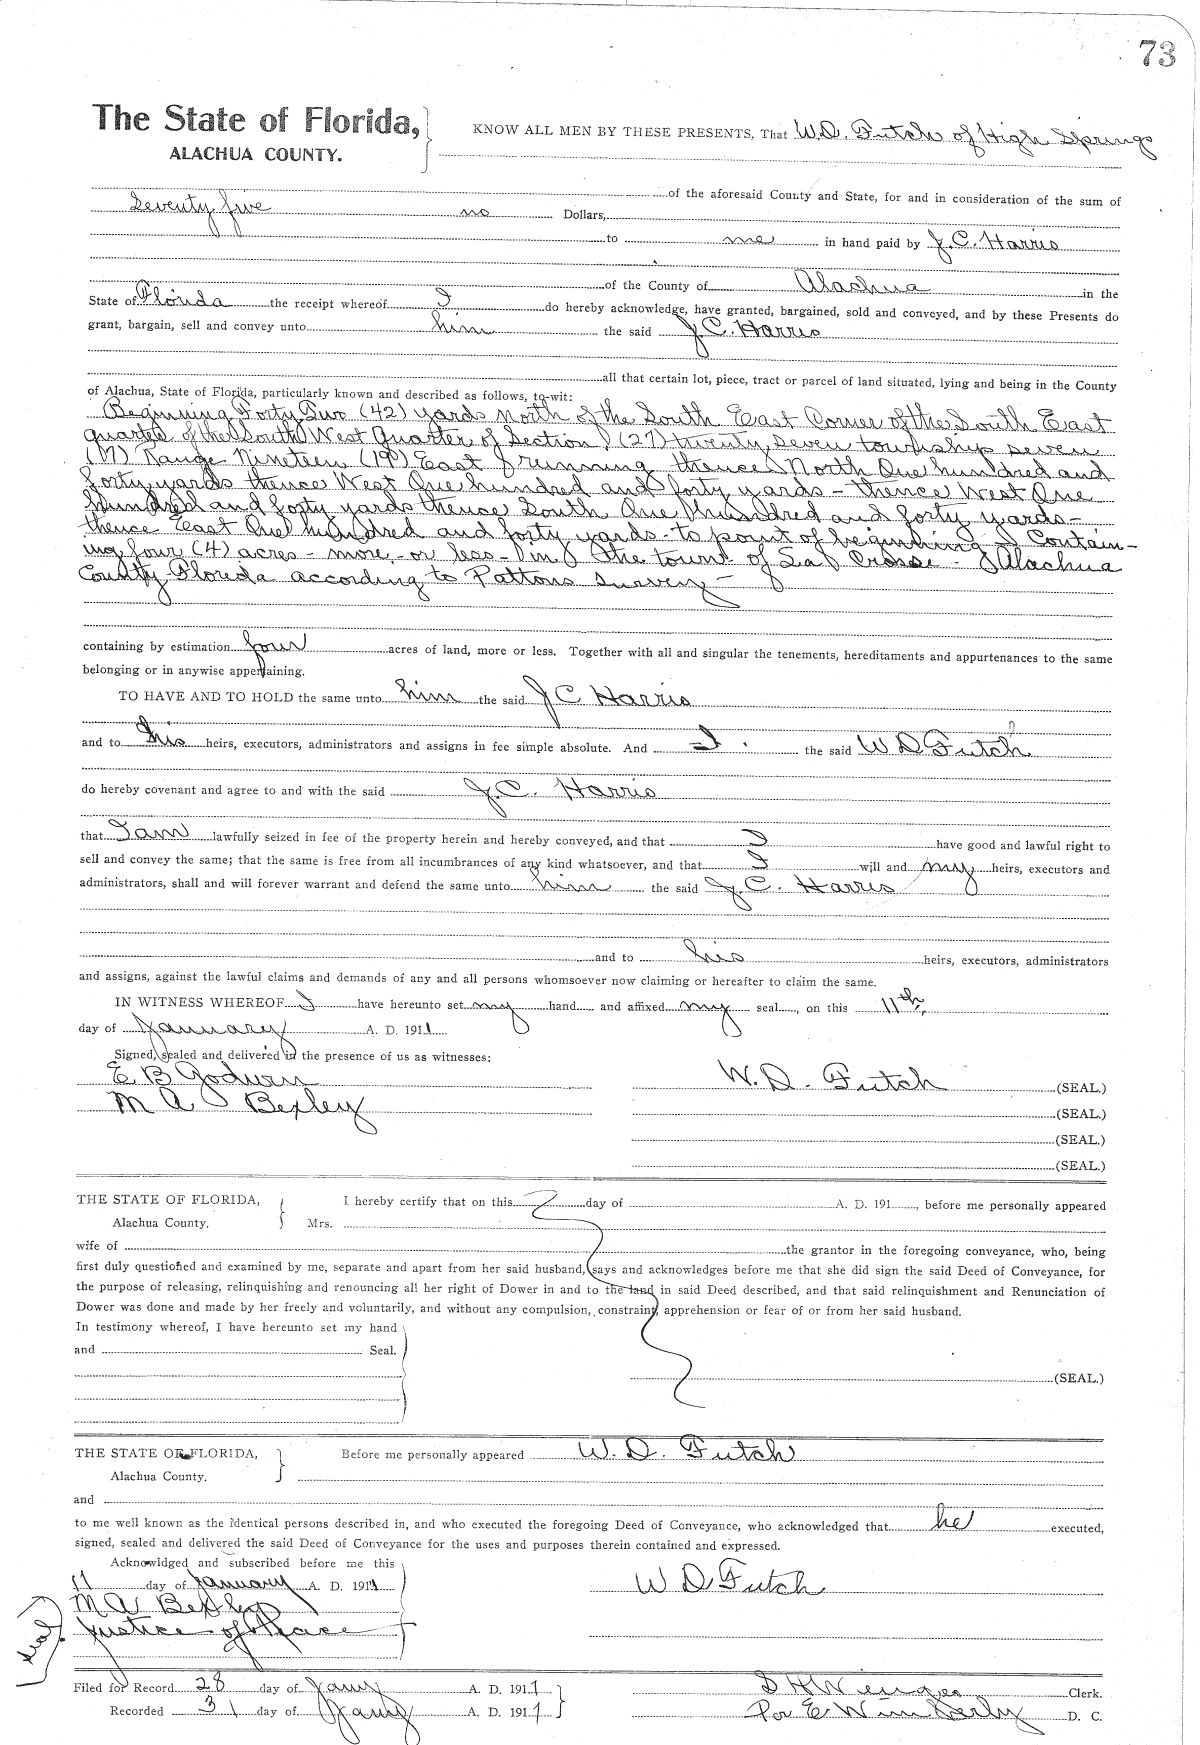 73
The State of Florida,
ALACHUA COUNTY.
KNOW ALL MEN BY THESE PRESENTS, That W.D. Futch of High Springs
of the aforesaid County and State, for and in consideration of the sum of
Seventy five no Dollars,
to me in hand paid by J.C. Harris
of the County of Alachua in the
State of Florida the receipt whereof I do hereby acknowledge, have granted, bargained, sold and conveyed, and by these Presents do
grant, bargain, sell and convey unto him the said J.C. Harris
all that certain lot, piece, tract or parcel of land situated, lying and being in the County
of Alachua, State of Florida, particularly known and described as follows, to-wit:
Beginning Forty Two (42) yards north of the South East Corner of the South East
quarter of the South West Quarter of Section (27) twenty seven township seven
(7) Range Nineteen (19) East running thence North One hundred and
forty yards thence West One hundred and forty yards - thence West One
hundred and forty yards thence South One hundred and forty yards -
thence East One hundred and forty yards - to point of beginning Contain-
ing four (4) acres - more - or less - in the town of La Crosse - Alachua
County Florida according to Pattons Survey -
containing by estimation four acres of land, more or less. Together with all and singular the tenements, hereditaments and appurtenances to the same
belonging or in anywise appertaining.
TO HAVE AND TO HOLD the same unto him the said J C Harris
and to his heirs, executors, administrators and assigns in fee simple absolute. And I the said W D Futch
do hereby covenant and agree to and with the said J.C. Harris
that I am lawfully seized in fee of the property herein and hereby conveyed, and that I have good and lawful right to
sell and convey the same; that the same is free from all incumbrances of any kind whatsoever, and that I will and my heirs, executors and
administrators, shall and will forever warrant and defend the same unto him the said J.C. Harris
and to his heirs, executors, administrators
and assigns, against the lawful claims and demands of any and all persons whomsoever now claiming or hereafter to claim the same.
IN WITNESS WHEREOF I have hereunto set my hand and affixed my seal, on this 11th
day of January A. D. 1911
Signed, sealed and delivered in the presence of us as witnesses:
E B Godwin
W. D. Futch (SEAL.)
M A Bexley
(SEAL.)
(SEAL.)
(SEAL.)
THE STATE OF FLORIDA,
Alachua County.
I hereby certify that on this day of A. D. 191 , before me personally appeared
Mrs.
wife of the grantor in the foregoing conveyance, who, being
first duly questioned and examined by me, separate and apart from her said husband, says and acknowledges before me that she did sign the said Deed of Conveyance, for
the purpose of releasing, relinquishing and renouncing all her right of Dower in and to the land in said Deed described, and that said relinquishment and Renunciation of
Dower was done and made by her freely and voluntarily, and without any compulsion, constraint, apprehension or fear of or from her said husband.
In testimony whereof, I have hereunto set my hand
and Seal.
(SEAL.)
THE STATE OF FLORIDA,
Alachua County.
Before me personally appeared W. D. Futch
and
to me well known as the identical persons described in, and who executed the foregoing Deed of Conveyance, who acknowledged that he executed,
signed, sealed and delivered the said Deed of Conveyance for the uses and purposes therein contained and expressed.
Acknowldged and subscribed before me this
11 day of January A. D. 1911
W D Futch
M A Bexley
Justice of Peace
(Seal)
Filed for Record 28 day of Jany A. D. 1911
S H Wienges Clerk.
Recorded 31 day of Jany A. D. 1911
Por E Wimberly D. C.